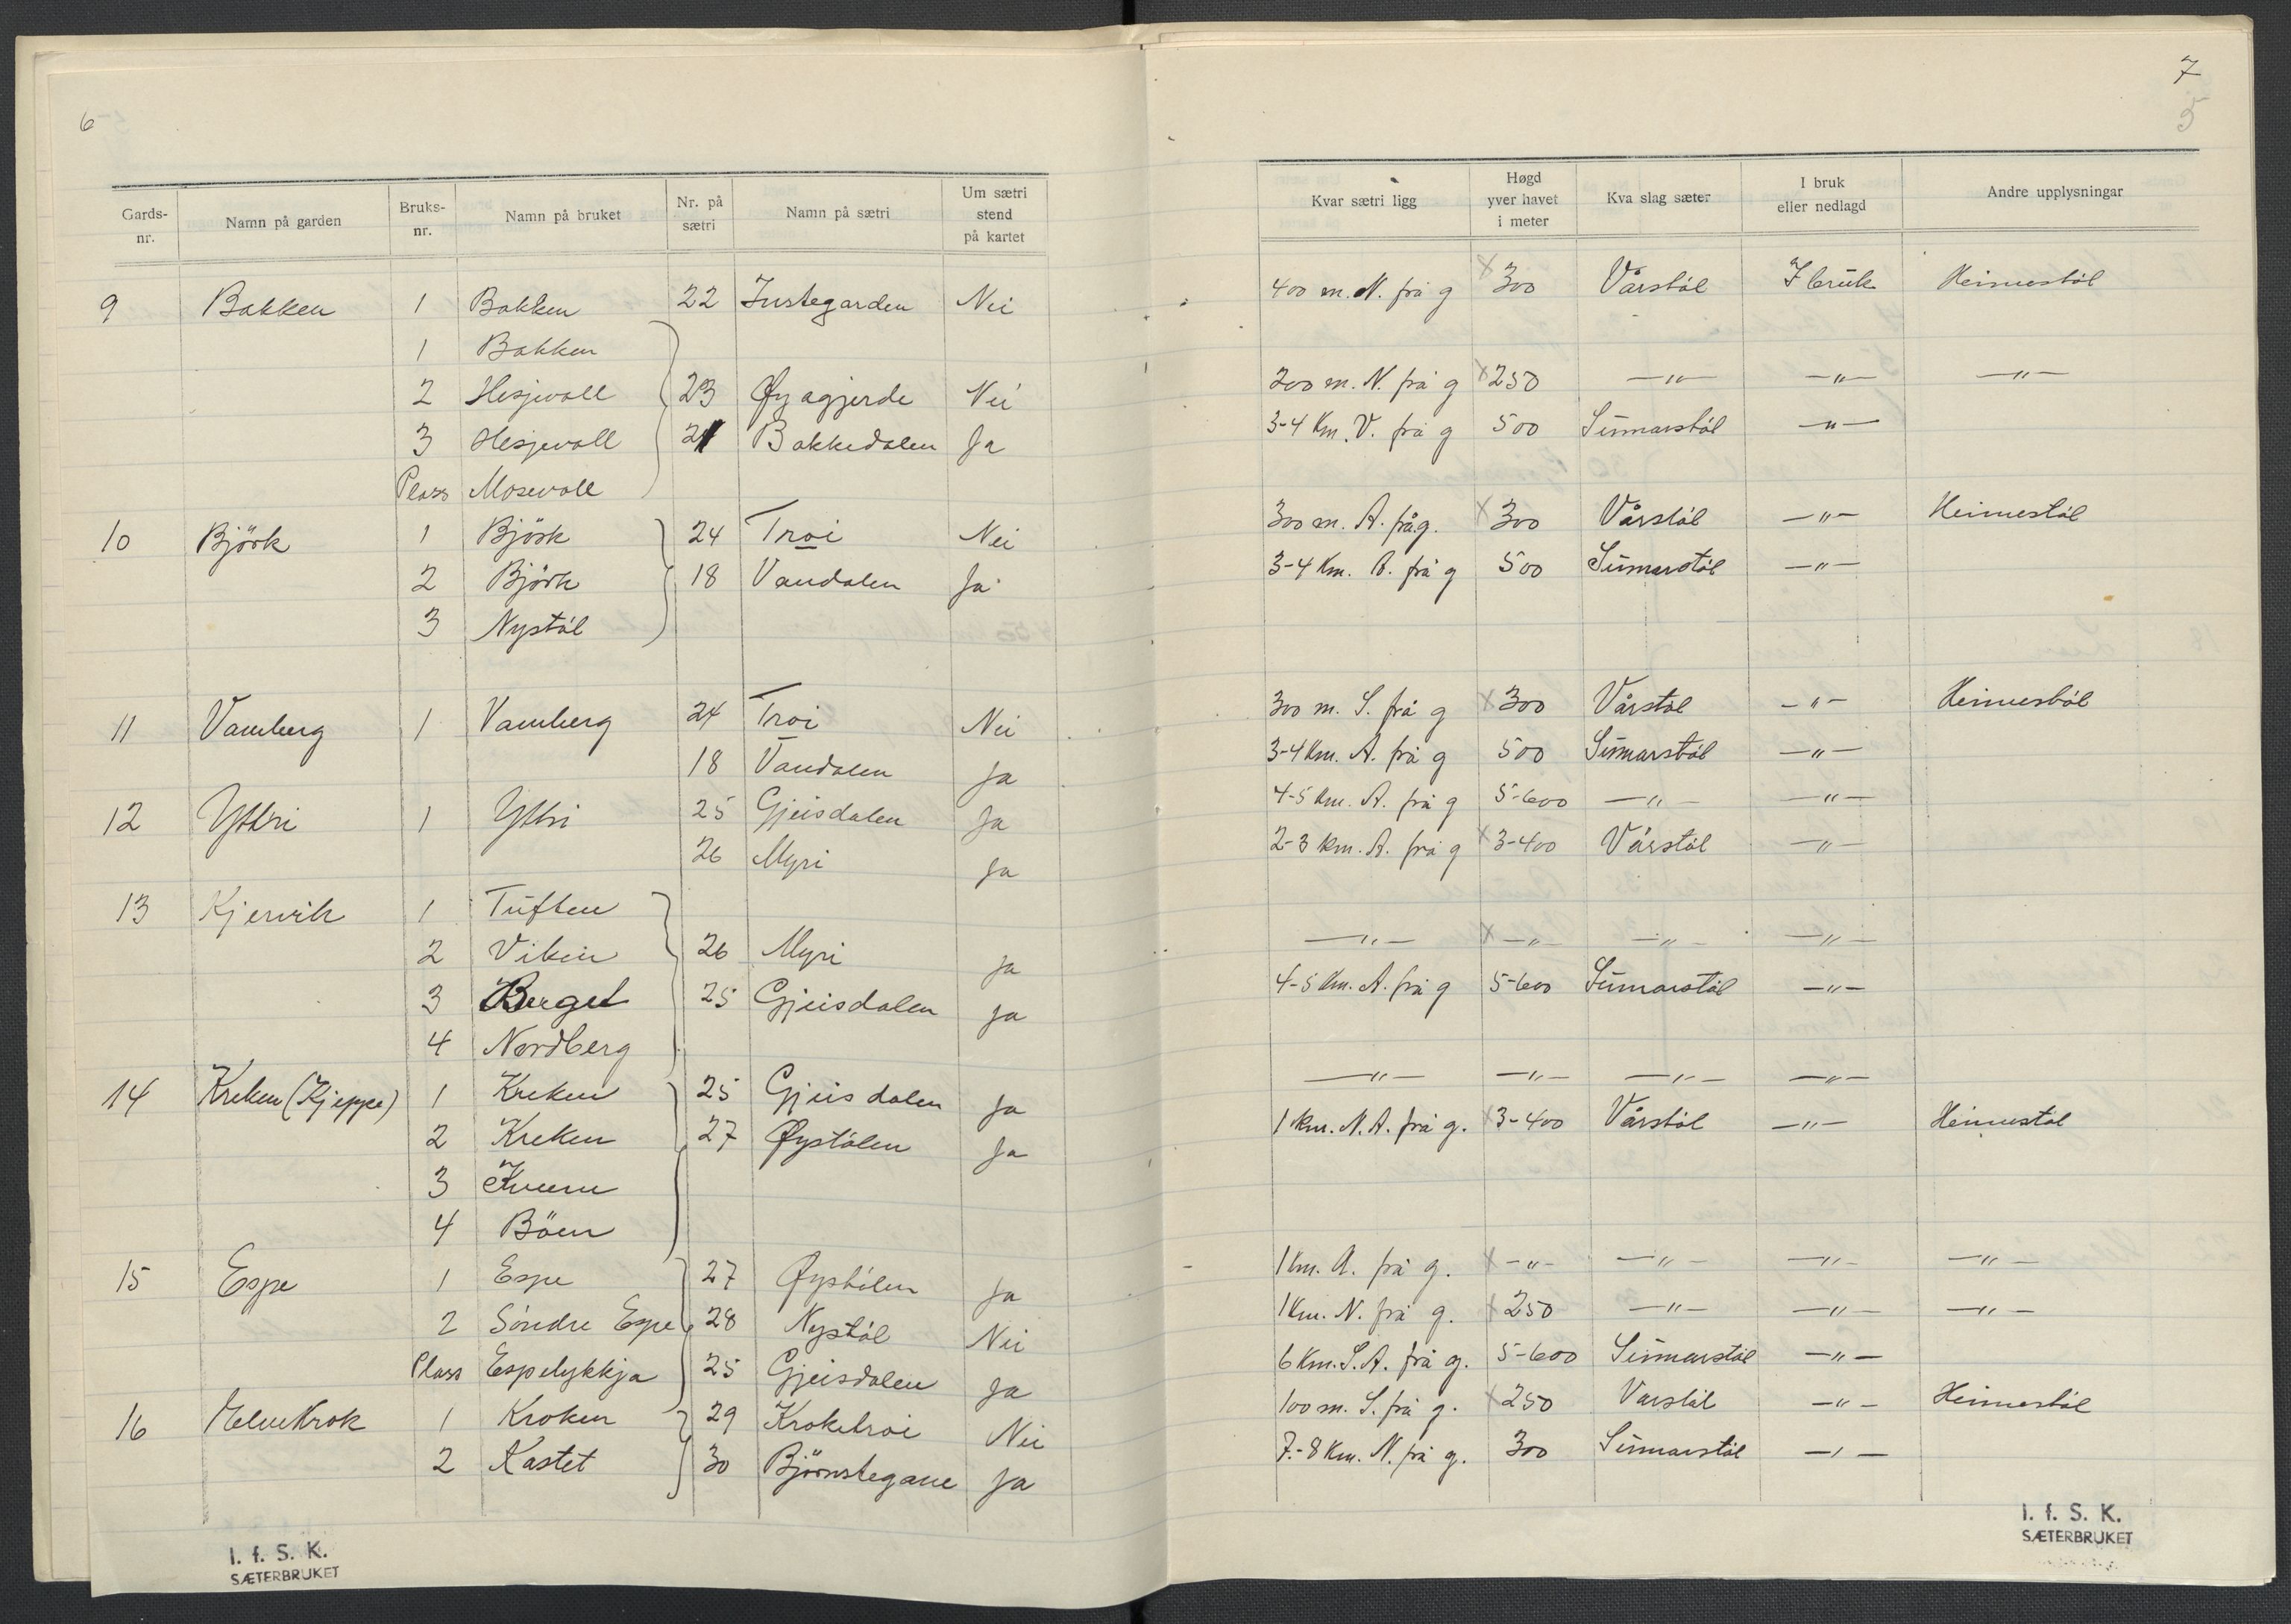 6
Gards-nr. Namn på garden Bruks-nr. Namn på bruket Nr. på sætri Namn på sætri Um sætri stend på kartet
9 Bakken 1 Bakken 22 Nei
1 Bakken
2 Hesjevoll 23 Øyagjerde Nei
3 Hesjevoll 21 Bakkedalen Ja
Plass Mosevoll
10 Björk 1 Björk 24 Troi Nei
2 Björk 18 Vandalen Ja
3 Nystöl
11 Vamberg 1 Vamberg 24 Troi Nei
18 Vandalen Ja
12 Yttri 1 Yttri 25 Gjeisdalen Ja
26 Myri Ja
13 Kjervik 1 Tuften
2 Vikin 26 Myri Ja
3 Berget 25 Gjeisdalen Ja
4 Nordberg
14 Kreken (Kjeppe) 1 Kreken 25 Gjeisdalen Ja
2 Kreken 27 Øystölen Ja
3
4 Böen
15 Espe 1 Espe 27 Øystölen Ja
2 Söndre Espe 28 Nystöl Nei
Plass Espelykkja 25 Gjeisdalen Ja
16 1 Kroken 29 Kroketroi Nei
2 Kastet 30 Björnstegane Ja
I. f. S. K.
SÆTERBRUKET
7
5
Kvar sætri ligg Høgd yver havet i meter Kva slag sæter I bruk eller nedlagd Andre upplysningar
400 m. N. frå g x 300 Vårstöl I bruk Heimestöl
200 m. N. frå g x 250 —"— —"— —"—
3-4 Km. V. frå g 500 Sumarstöl —"—
300 m. A. frå g. x 300 Vårstöl —"— Heimestöl
3-4 Km. A. frå g 500 Sumarstöl —"—
300 m. S. frå g x 300 Vårstöl —"— Heimestöl
3-4 Km. A. frå g 500 Sumarstöl —"—
4-5 Km. A. frå g 5-600 —"— —"—
2-3 Km. A. frå g x 3-400 Vårstöl —"—
—"— x —"— —"— —"—
4-5 Km. A. frå g 5-600 Sumarstöl —"—
—"— —"— —"— —"—
1 Km. N. A. frå g. x 3-400 Vårstöl —"— Heimestöl
1 Km. A. frå g. x —"— —"— —"— —"—
1 Km. N. frå g. x 250 —"— —"— —"—
6 Km. S. A. frå g. 5-600 Sumarstöl —"—
100 m. S. frå g. x 250 Vårstöl —"— Heimestöl
7-8 Km. N. frå g. 300 Sumarstöl —"—
I. f. S. K.
SÆTERBRUKET